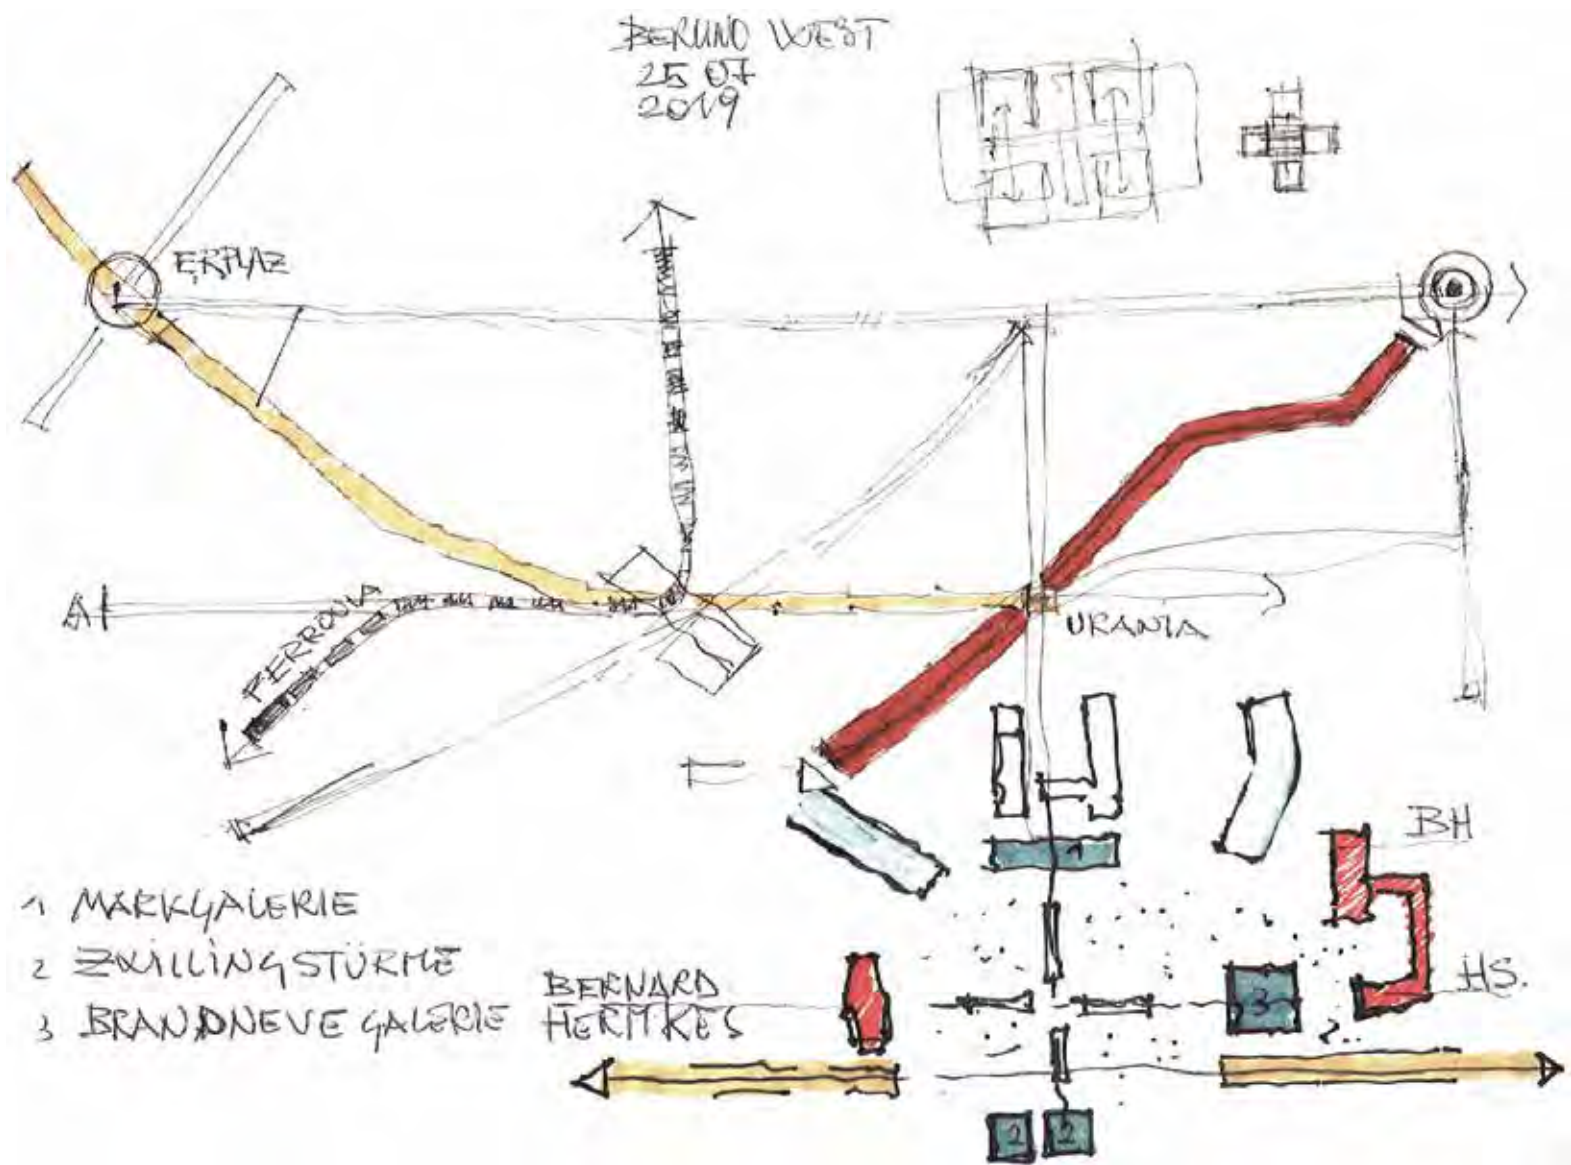 BERLINO WEST
25 07
2019
ERPLAZ
FERROVIA
URANIA
BH
1 MARKGALERIE
2 ZWILLINGSTÜRME
3 BRANDNEUE GALERIE
BERNARD
HERMKES
HS.
1
3
2 2